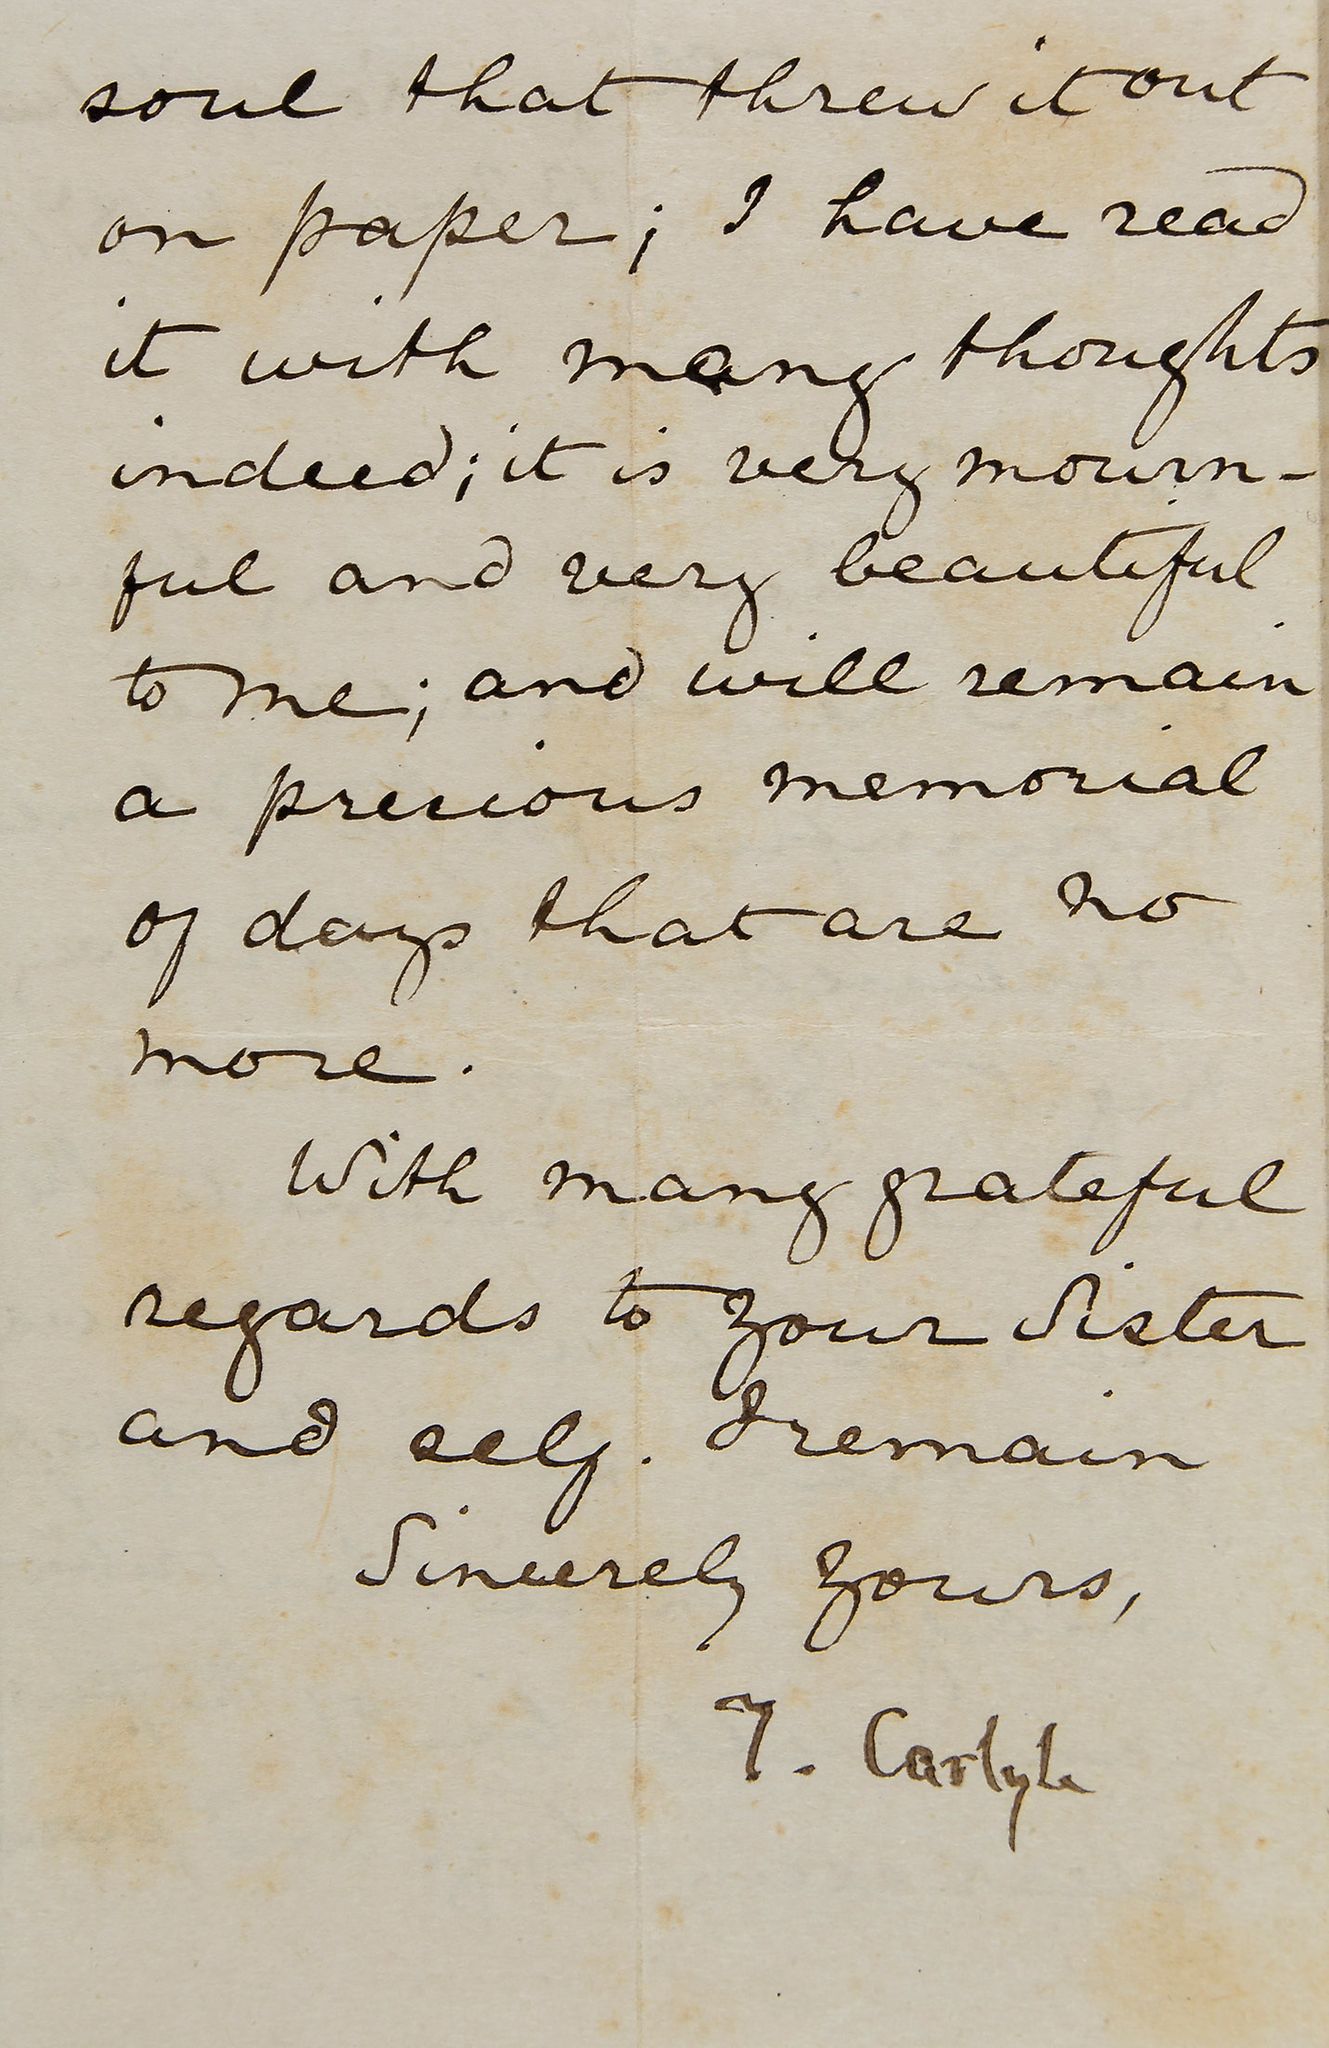 soul that threw it out
on paper; I have read
it with many thoughts
indeed; it is very mourn-
ful and very beautiful
to me; and will remain
a precious memorial
of days that are no
more.
With many grateful
regards to your Sister
and self. I remain
Sincerely yours,
T. Carlyle